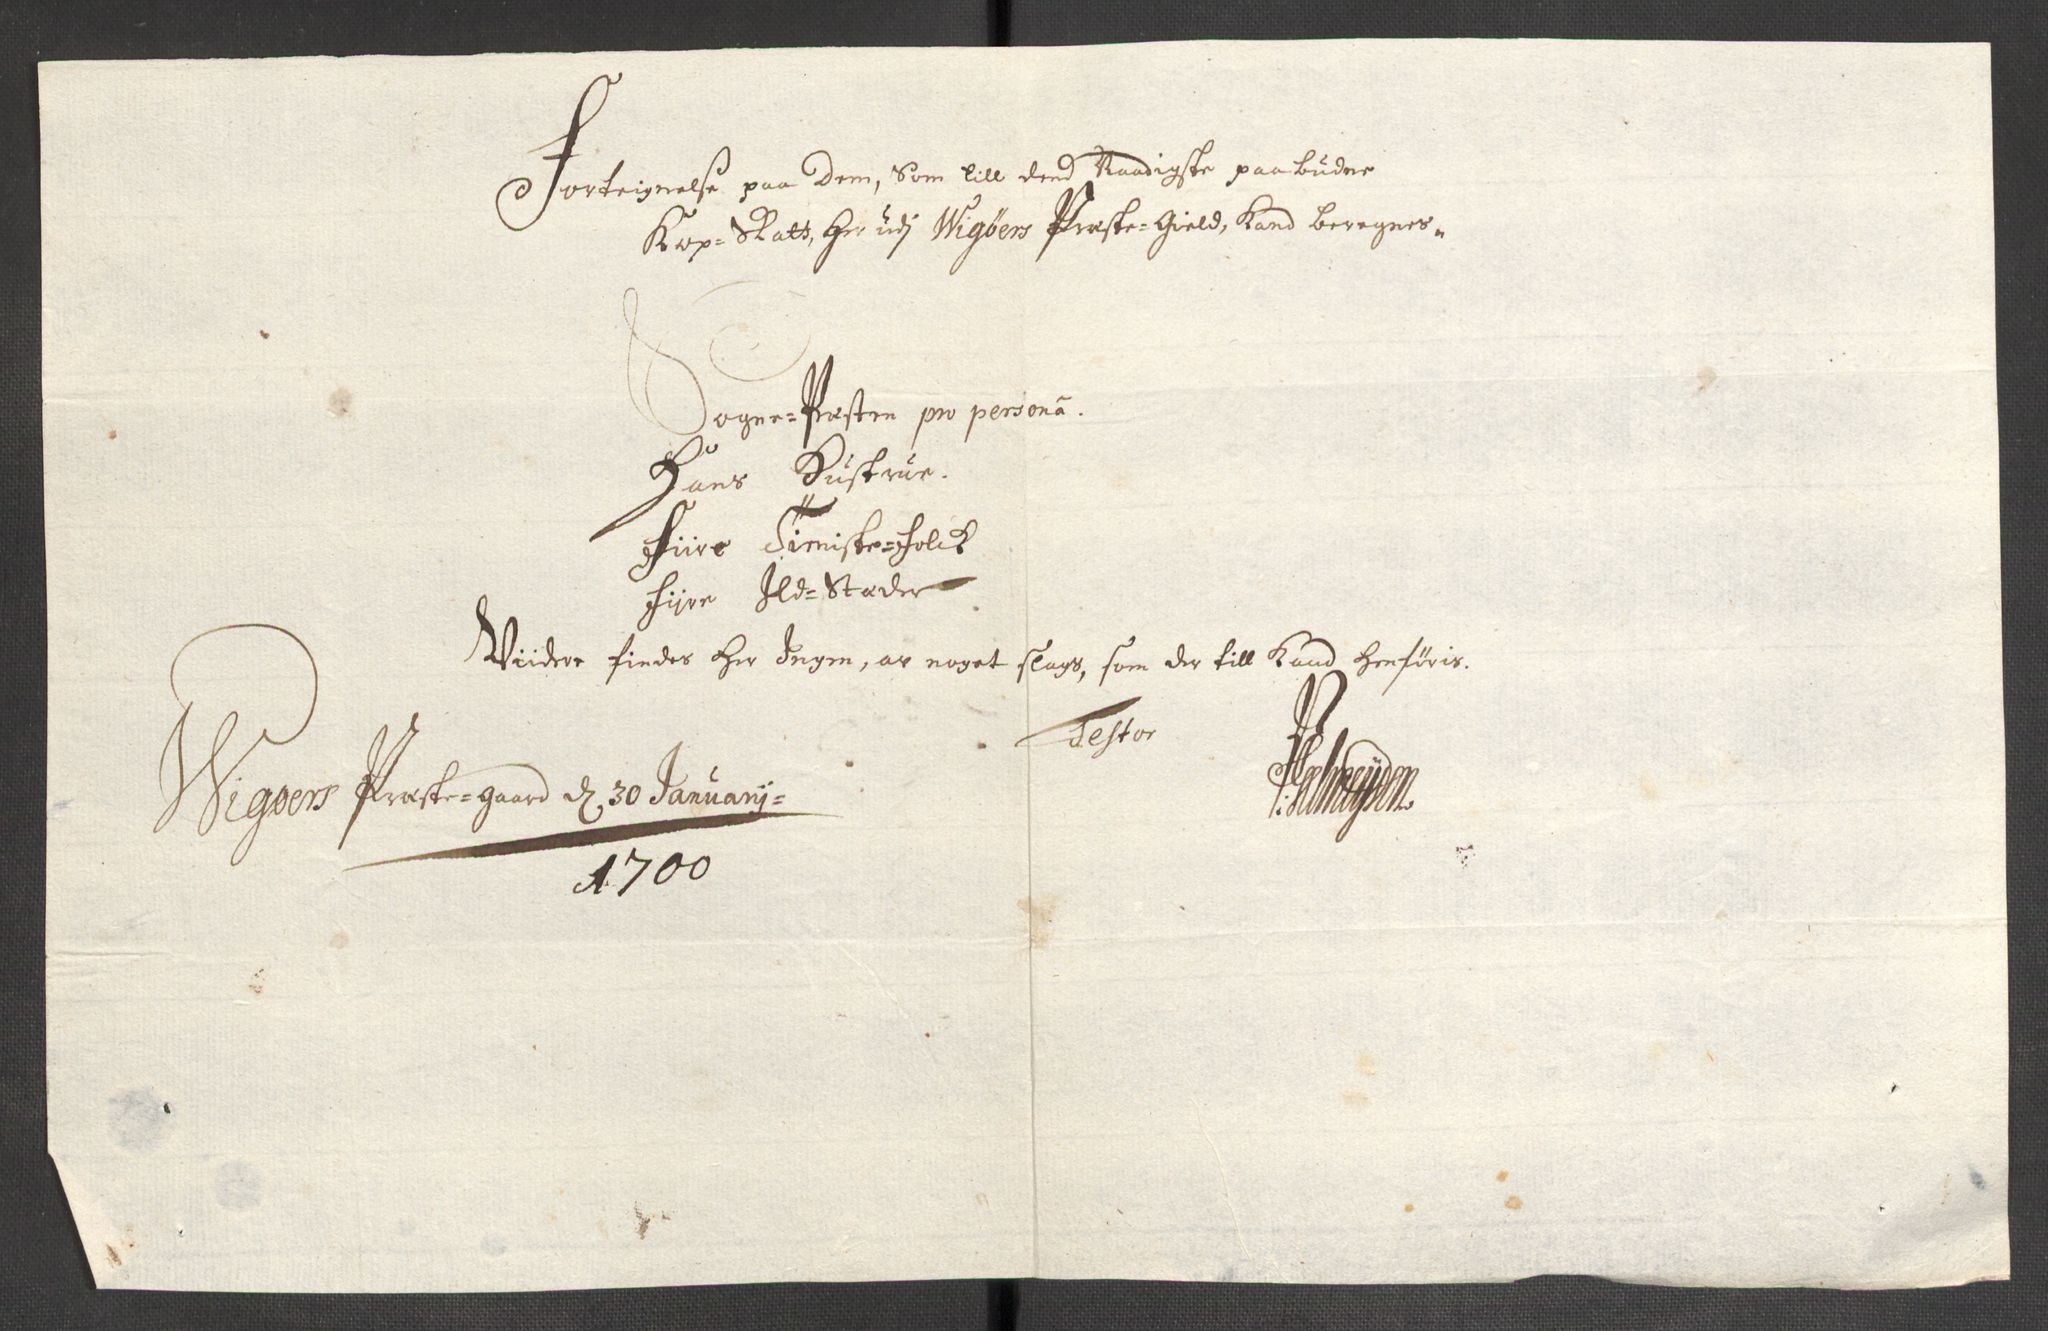 Forteignelse paa Dem, Som till dend Naadigste paabudne
Kop=Skatt, Her udj Wigøers Præste=Gield, Kand beregnes„
Sogne=Præsten pro personâ.
Hans Hustrue.
Fiire Tieniste=Folck
Fiire Ild=Stæder
Viidere findes her Ingen, aff noget slags, som der till Kand henføris.
Testor
Wigøers Præste=gaard d. 30 Januarij=
1700